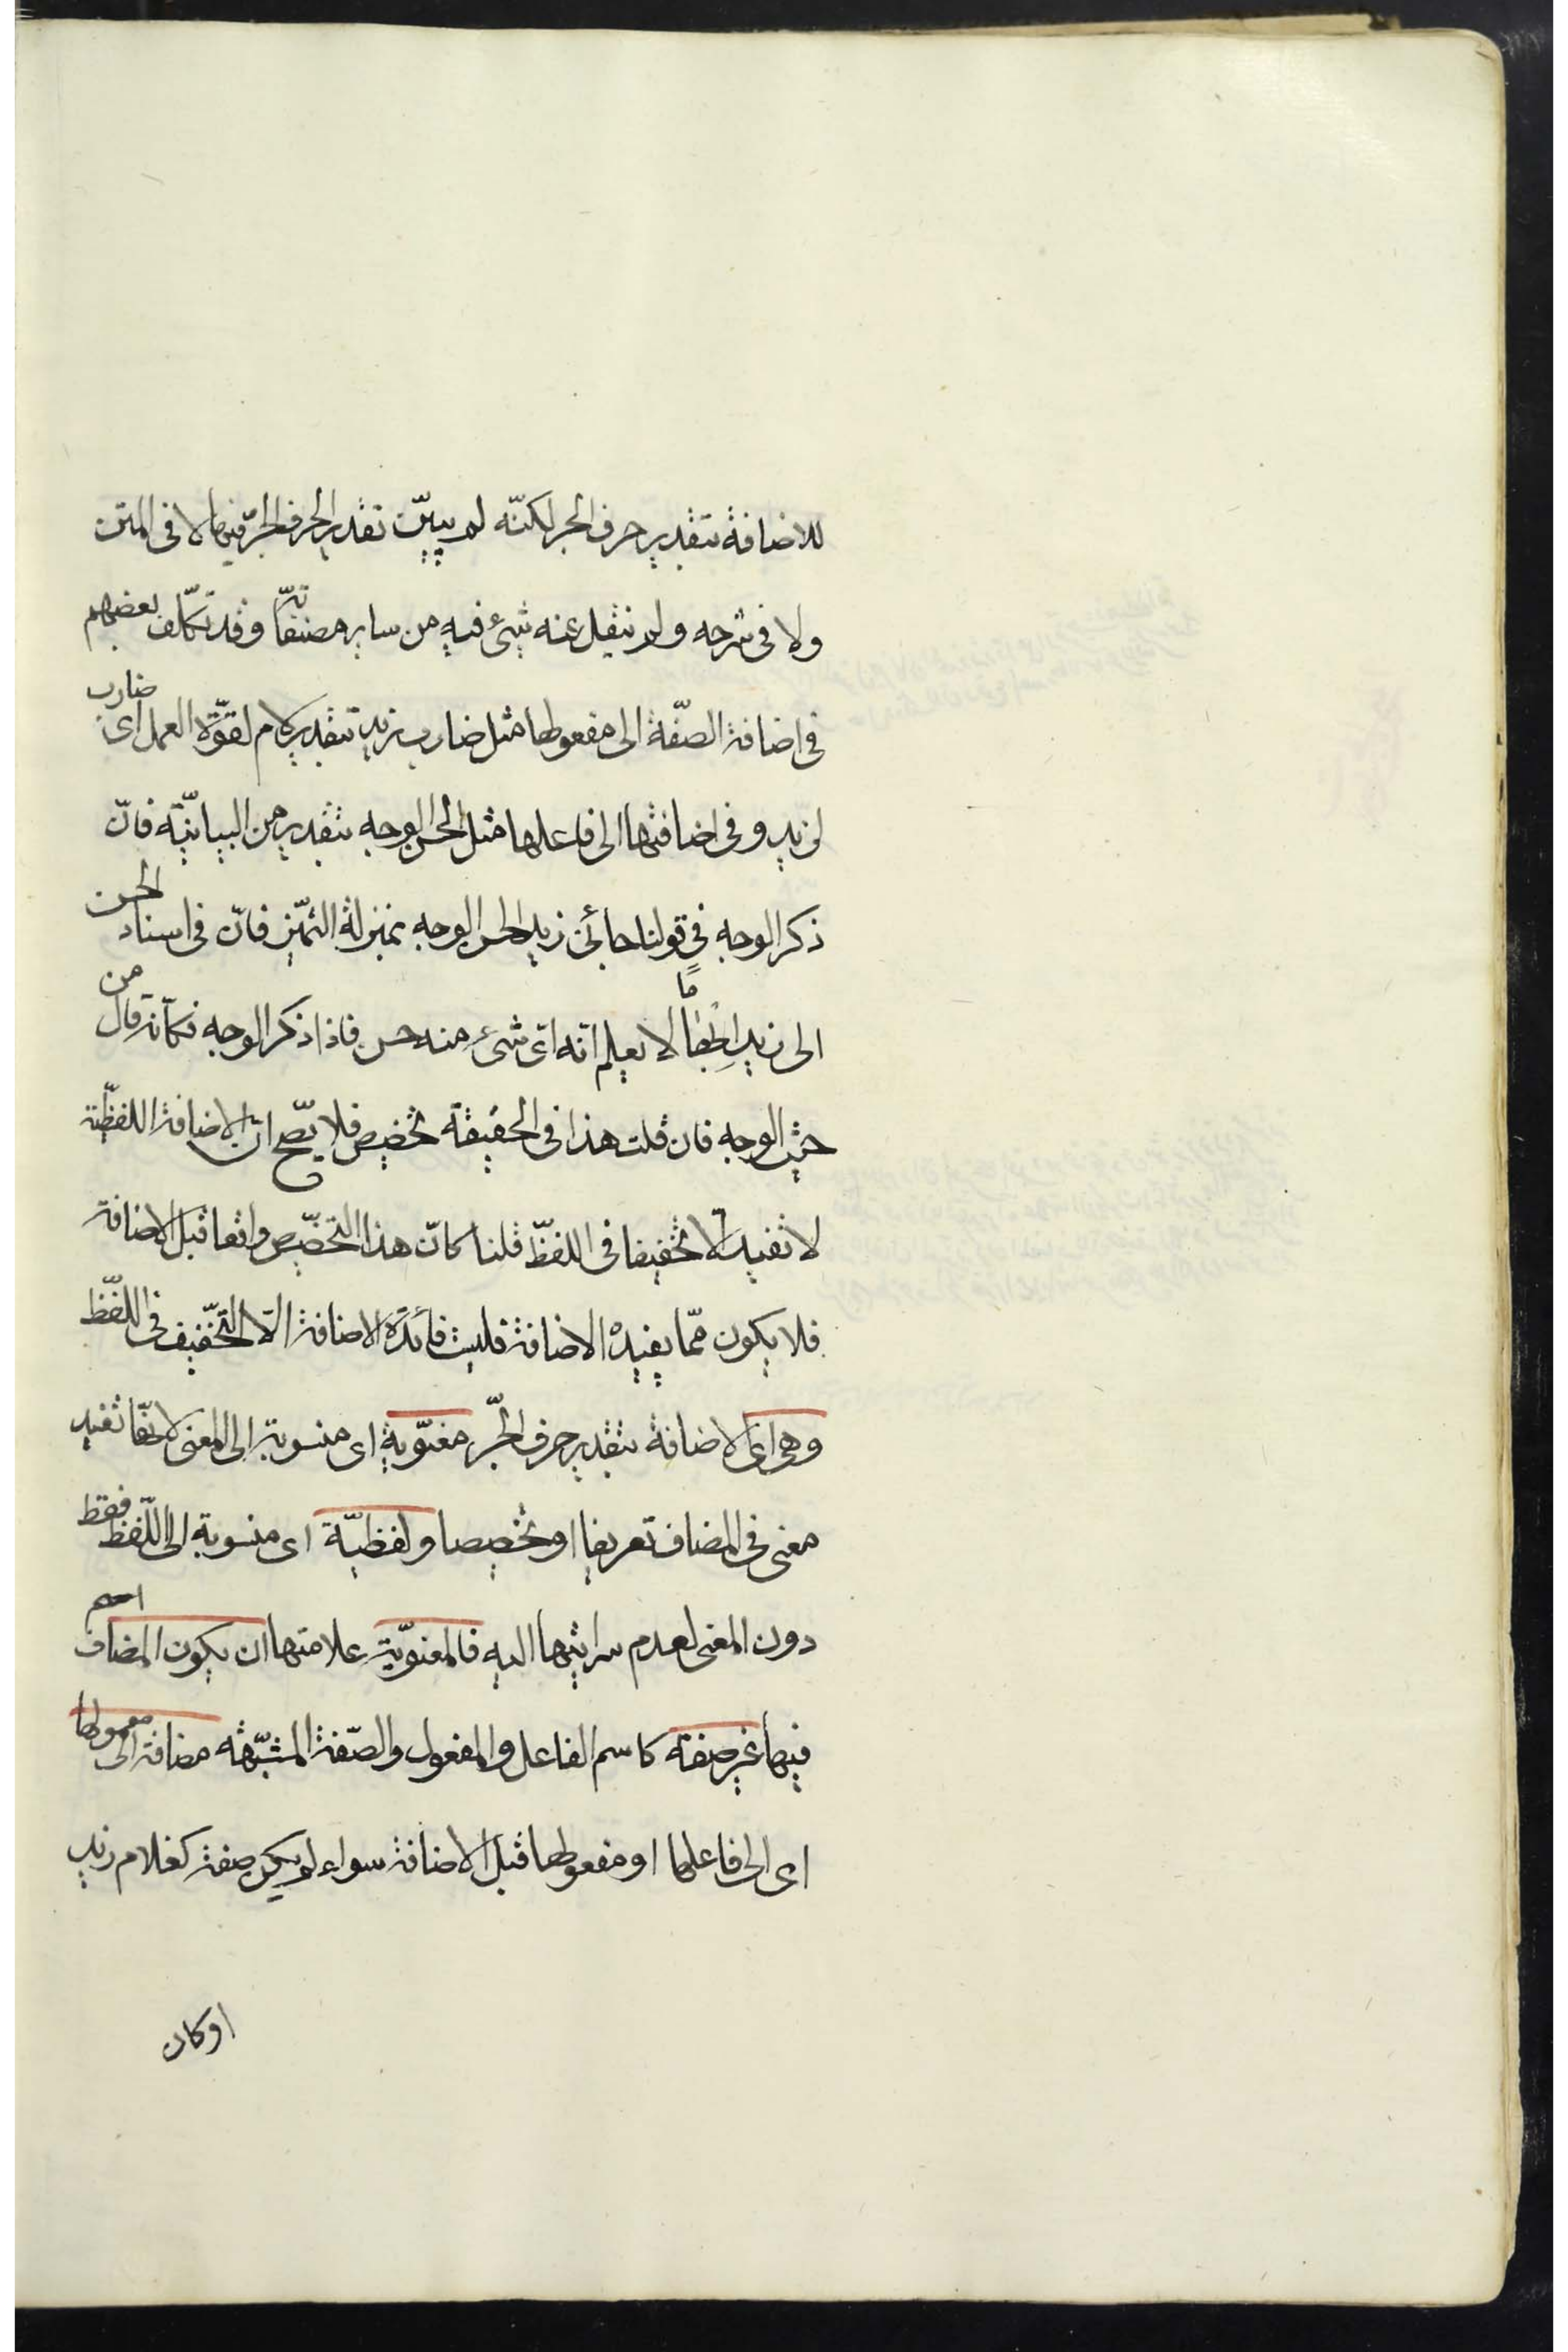 للاضافة بتقدير حرف الجر لكنّه لم يبيّن تقدير الحرف الجرّ فيها لا فى المتن
ولا فى شرحه ولم ينقل عنه شئ فيه من ساير مصنفاته وقد تكلّف بعضهم
فى اضافة الصفّة الى مفعولها مثل ضارب زيد بتقدير كلام لقوّة العمل اى ضارب
لزيد وفى اضافتها الى فاعلها مثل الحسن الوجه بتقدير من البيانيّة فانّ
ذكر الوجه فى قولنا جائنى زيد الحسن الوجه بمنزلة التمّيز فانّ فى اسناد الحسن
الى زيد ابهاما لا يعلم انّه اىّ شئ منه حسن فاذا ذكر الوجه فكانّه قال من
حيث الوجه فان قلت هذا فى الحقيقة تخصيص فلا يصّح انّ الاضافة اللفظّية
لا تفيد الّا تخفيفا فى اللفظّ قلنا كانّ هذا التخصّيص واقعا قبل الاضافة
فلا يكون ممّا يفيده الاضافة فليست فائدة الاضافة الّا التخّفيف فى اللّفظ
وهى اى الاضافة بتقدير حرف الجّر معنوّية اى منسوبة الى المعنى لانّها تفيد
معنى فى المضاف تعريفا او تخصيصا ولفظيّة اى منسوبة الى اللّفظ فقط
دون المعنى لعدم سرايتها اليه فالمعنوّية علامتها ان يكون المضاف اسم
فيها غير صفة كاسم الفاعل والمفعول والصّفة المشبّهة مضافة الى معمولها
اى الى فاعلها او مفعولها قبل الاضافة سواء لم يكن صفة كغلام زيد
او كان